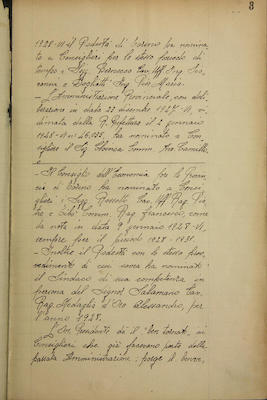 3
1928-VI il Podestà di Torino ha nomina
to a Consiglieri per lo stesso periodo di
tempo i Sigg. Bernocco Cav. Uff. Ing. Gio
vanni e Boglietti Ing. Pio Mario.
- L'Amministrazione Provinciale, con deli
berazione in data 22 dicembre 1927-VI, vi
dimata dalla R. Prefettura il 2 gennaio
1928-VI n. 46.025, ha nominato a Con
sigliere il Sig. Comm. Avv. Camillo,
e
- Il Consiglio dell'Economia per la Provin
cia di Torino ha nominato a Consi
glieri i Sigg. Cav. Uff. Rag. 
e Comm. Rag. Francesco, come
da nota in data 9 gennaio 1928-VI,
sempre per il periodo 1928-1931.
- Inoltre il Podestà con lo stesso prov
vedimento di cui sopra ha nominato
il Sindaco di sua competenza in
persona del Signor Salamano Cav.
Rag. Medaglia d'Oro Alessandro, per
l'anno 1928.
Presidente dà il "ben tornato" ai
Consiglieri che già facevano parte della
passata Amministrazione; porge il benve,